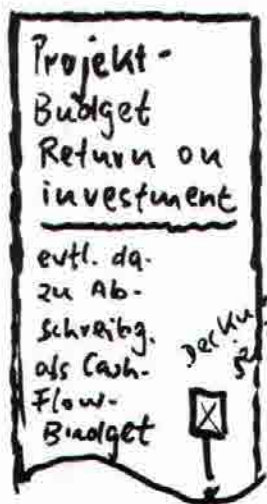 Projekt-
Budget
Return on
investment
evtl. da-
zu Ab-
schreibg.
als Cash-
Flow-
Budget